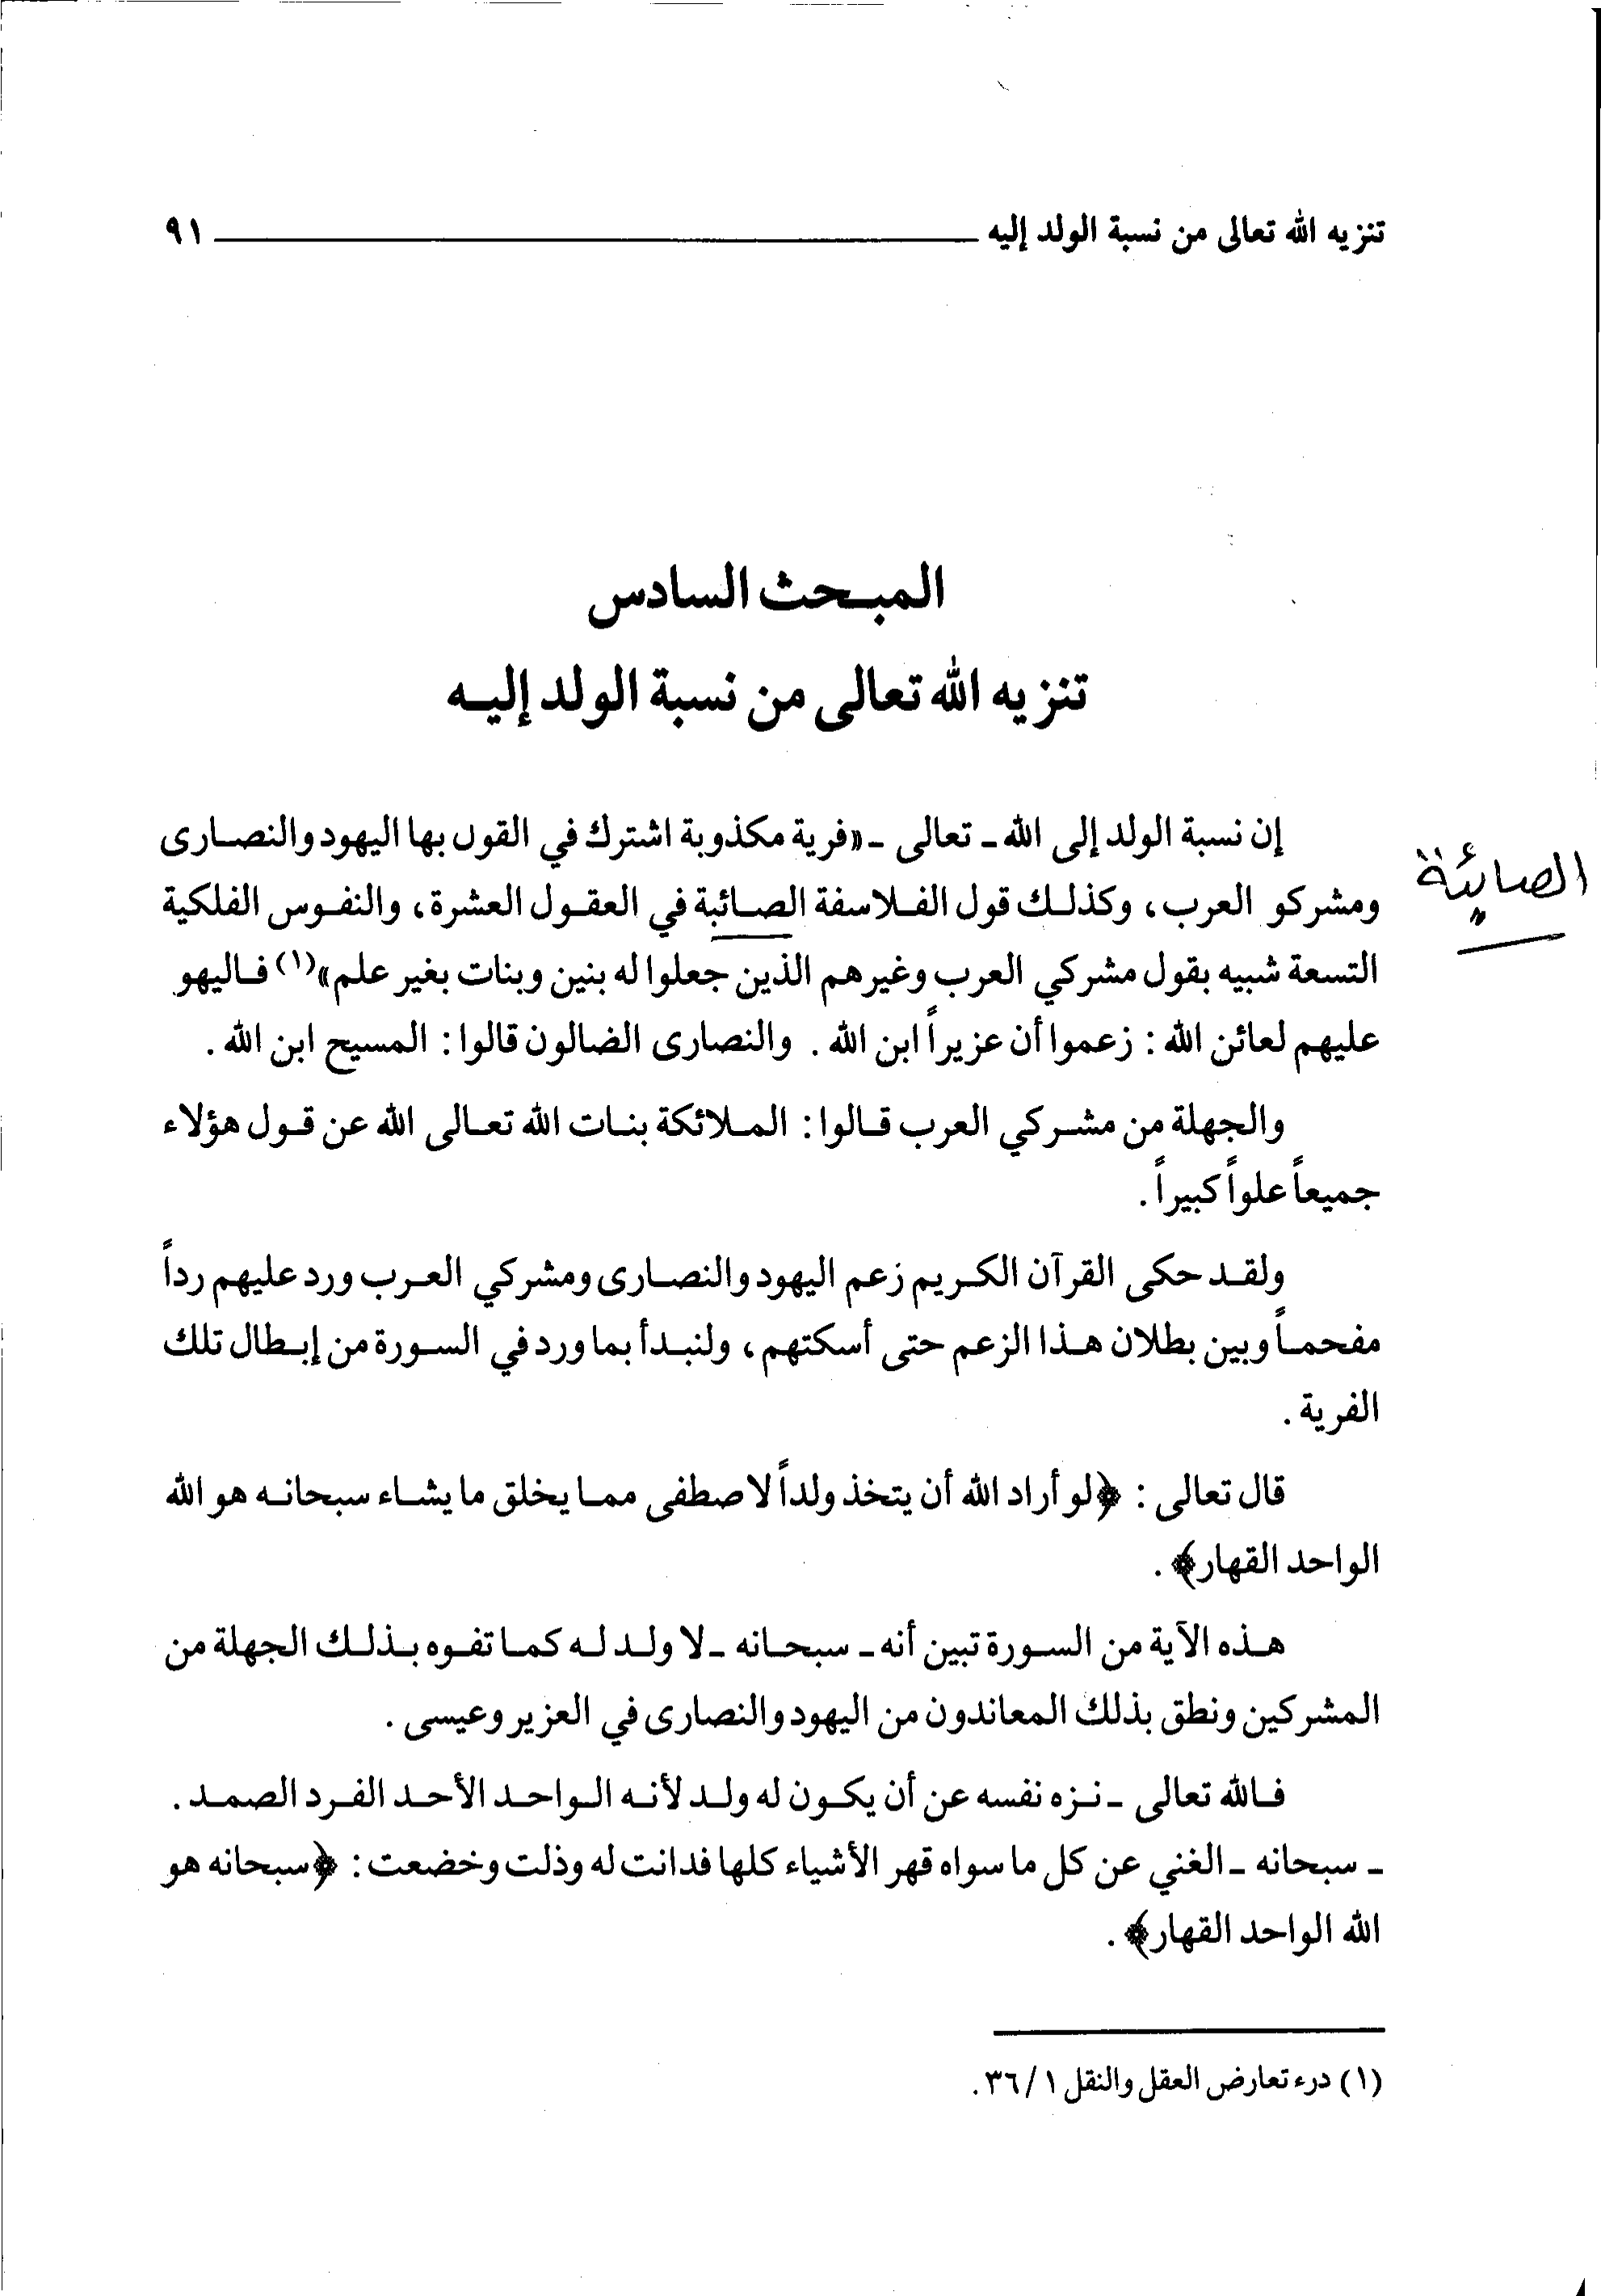 تنزيه الله تعالى من نسبة الولد إليه ــــــــ ٩١
المبحث السادس
تنزيه الله تعالى من نسبة الولد إليه
إن نسبة الولد إلى الله ـ تعالى ـ «فرية مكذوبة اشترك في القول بها اليهود والنصارى
ومشركو العرب، وكذلك قول الفلاسفة الصائبة في العقول العشرة، والنفوس الفلكية
الصابئة
التسعة شبيه بقول مشركي العرب وغيرهم الذين جعلوا له بنين وبنات بغير علم»(١) فاليهو
عليهم لعائن الله : زعموا أن عزيراً ابن الله . والنصارى الضالون قالوا : المسيح ابن الله .
والجهلة من مشركي العرب قالوا : الملائكة بنات الله تعالى الله عن قول هؤلاء
جميعاً علواً كبيراً .
ولقد حكى القرآن الكريم زعم اليهود والنصارى ومشركي العرب ورد عليهم رداً
مفحماً وبين بطلان هذا الزعم حتى أسكتهم، ولنبدأ بما ورد في السورة من إبطال تلك
الفرية .
قال تعالى : ﴿لو أراد الله أن يتخذ ولداً لاصطفى مما يخلق ما يشاء سبحانه هو الله
الواحد القهار﴾ .
هذه الآية من السورة تبين أنه ـ سبحانه ـ لا ولد له كما تفوه بذلك الجهلة من
المشركين ونطق بذلك المعاندون من اليهود والنصارى في العزير وعيسى .
فالله تعالى ـ نزه نفسه عن أن يكون له ولد لأنه الواحد الأحد الفرد الصمد .
ـ سبحانه ـ الغني عن كل ما سواه قهر الأشياء كلها فدانت له وذلت وخضعت : ﴿سبحانه هو
الله الواحد القهار﴾ .
(١) درء تعارض العقل والنقل ١/ ٣٦ .